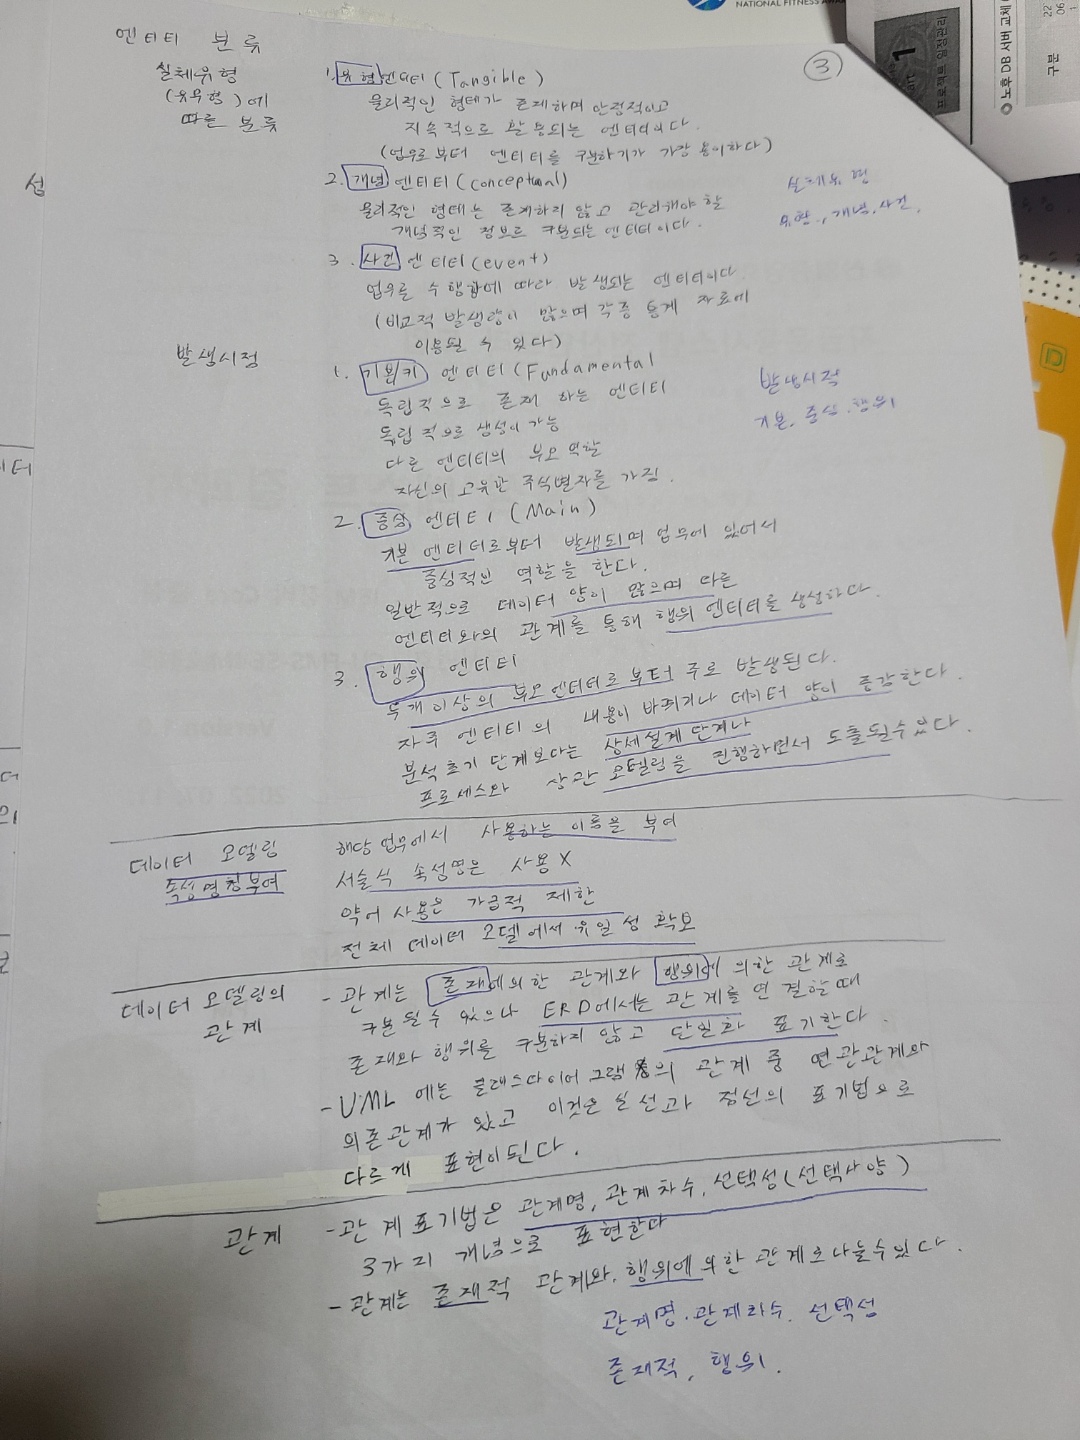 NATIONAL FITNESS
엔티티 분류
③
실체유형
(유무형)에
따른 분류
1. 유형엔티티 (Tangible)
물리적인 형태가 존재하며 안정적이고
지속적으로 활용되는 엔티티이다.
(업무로부터 엔티티를 구분하기가 가장 용이하다)
2. 개념 엔티티 (conceptual)
물리적인 형태는 존재하지 않고 관리해야 할
개념적인 정보로 구분되는 엔티티이다.
실체유형
유형., 개념, 사건,
3. 사건 엔티티(event)
업무를 수행함에 따라 발생되는 엔티티이다
(비교적 발생량이 많으며 각종 통계 자료에
이용될 수 있다)
발생시점
1. 기본/키 엔티티 (Fundamental
독립적으로 존재 하는 엔티티
독립적으로 생성이 가능
다른 엔티티의 부모 역할
자신의 고유한 주식별자를 가짐.
발생시점
기본, 중심, 행위
2. 중심 엔티티 (Main)
기본 엔티티로부터 발생되며 업무에 있어서
중심적인 역할을 한다.
일반적으로 데이터 양이 많으며 다른
엔티티와의 관계를 통해 행위 엔티티를 생성하다.
3. 행위 엔티티
두개 이상의 부모엔티티로부터 주로 발생된다.
자주 엔티티의 내용이 바뀌거나 데이터 양이 증감한다.
분석 초기 단계보다는 상세설계 단계나
프로세스와 상관 모델링을 진행하면서 도출될수있다.
데이터 모델링
속성명칭부여
해당 업무에서 사용하는 이름을 부여
서술식 속성명은 사용 X
약어 사용은 가급적 제한
전체 데이터 모델에서 유일성 확보
데이터 모델링의
관계
- 관계는 존재에의한 관계와 행위에 의한 관계로
구분 될수 있으나 ERD에서는 관계를 연결할때
존재와 행위를 구분하지 않고 단일화 표기한다.
- UML 에는 클래스다이어그램의 관계 중 연관관계와
의존관계가 있고 이것은 실선과 점선의 표기법으로
다르게 표현이된다.
관계
- 관계표기법은 관계명, 관계차수, 선택성(선택사양)
3가지 개념으로 표현한다
- 관계는 존재적 관계와, 행위에 의한 관계로나눌수있다.
관계명, 관계차수, 선택성
존재적, 행위.
1
프로젝트 일정관리
노후 DB 서버 교체
구분
22
06
섬
터